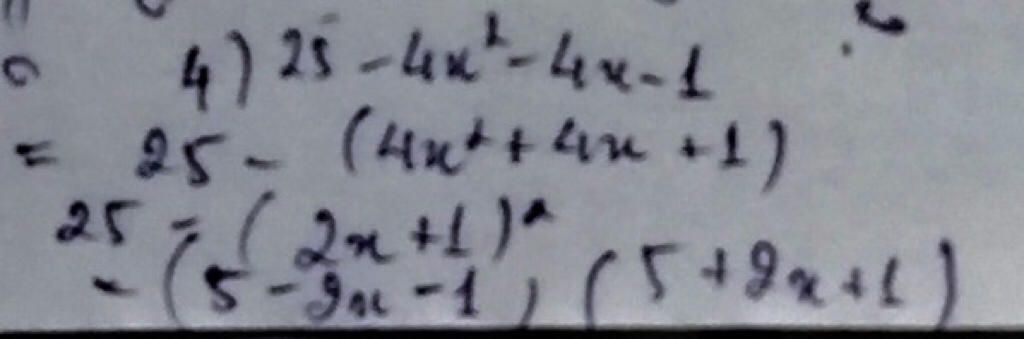 4) 25 - 4x² - 4x - 1
= 25 - (4x² + 4x + 1)
25 - (2x + 1)²
- (5 - 2x - 1) (5 + 2x + 1)